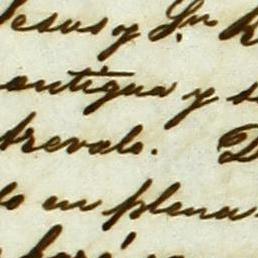 Jesus y Sn
antigua y s
trevalo. D
do en plena